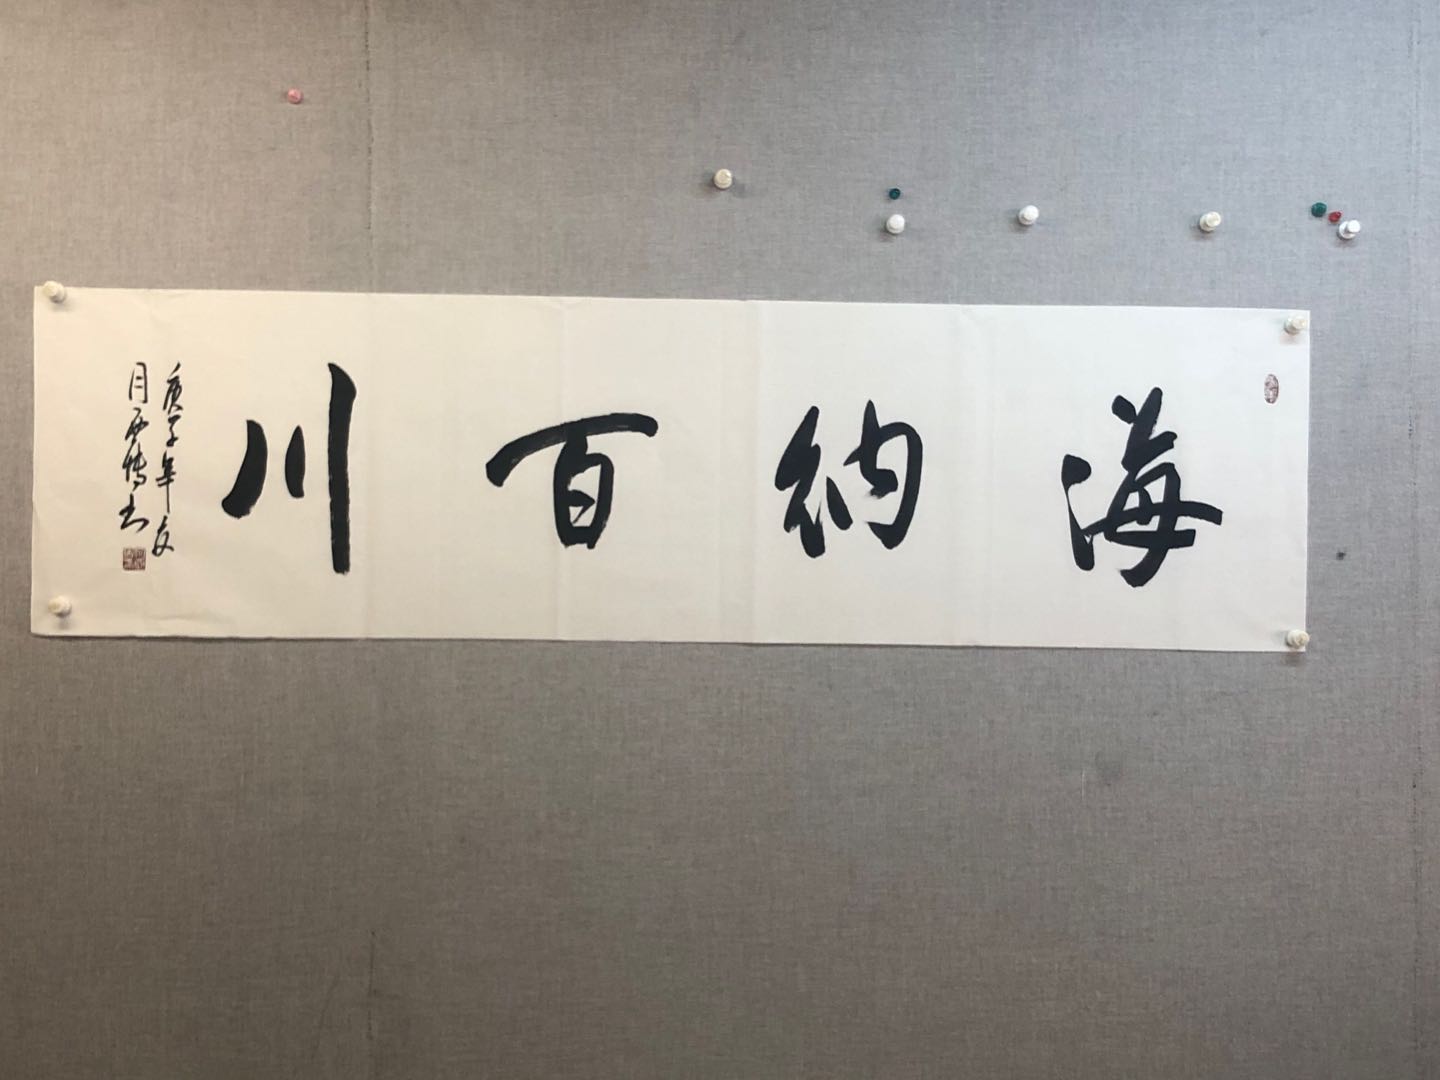 海纳百川
庚子年夏
月西博书